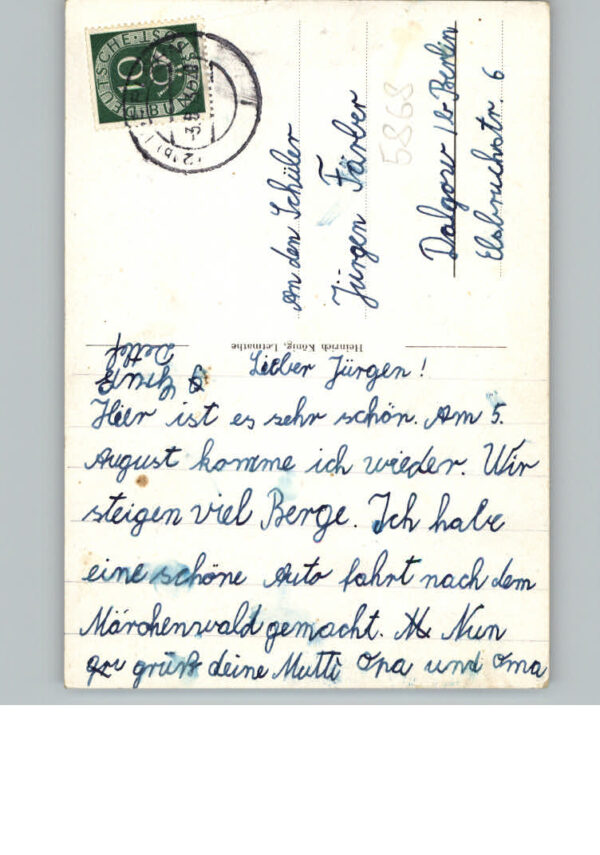 DEUTSCHE BUNDESPOST
10
An den Schüler
Jürgen Färber
5868
Dalgow b-Berlin
Elsbruchstr. 6
Heinrich König, Letmathe
Lieber Jürgen!
Hier ist es sehr schön. Am 5.
August komme ich wieder. Wir
steigen viel Berge. Ich habe
eine schöne Auto fahrt nach dem
Märchenwald gemacht. Nun
grüß deine Mutti Opa und Oma
Detlef